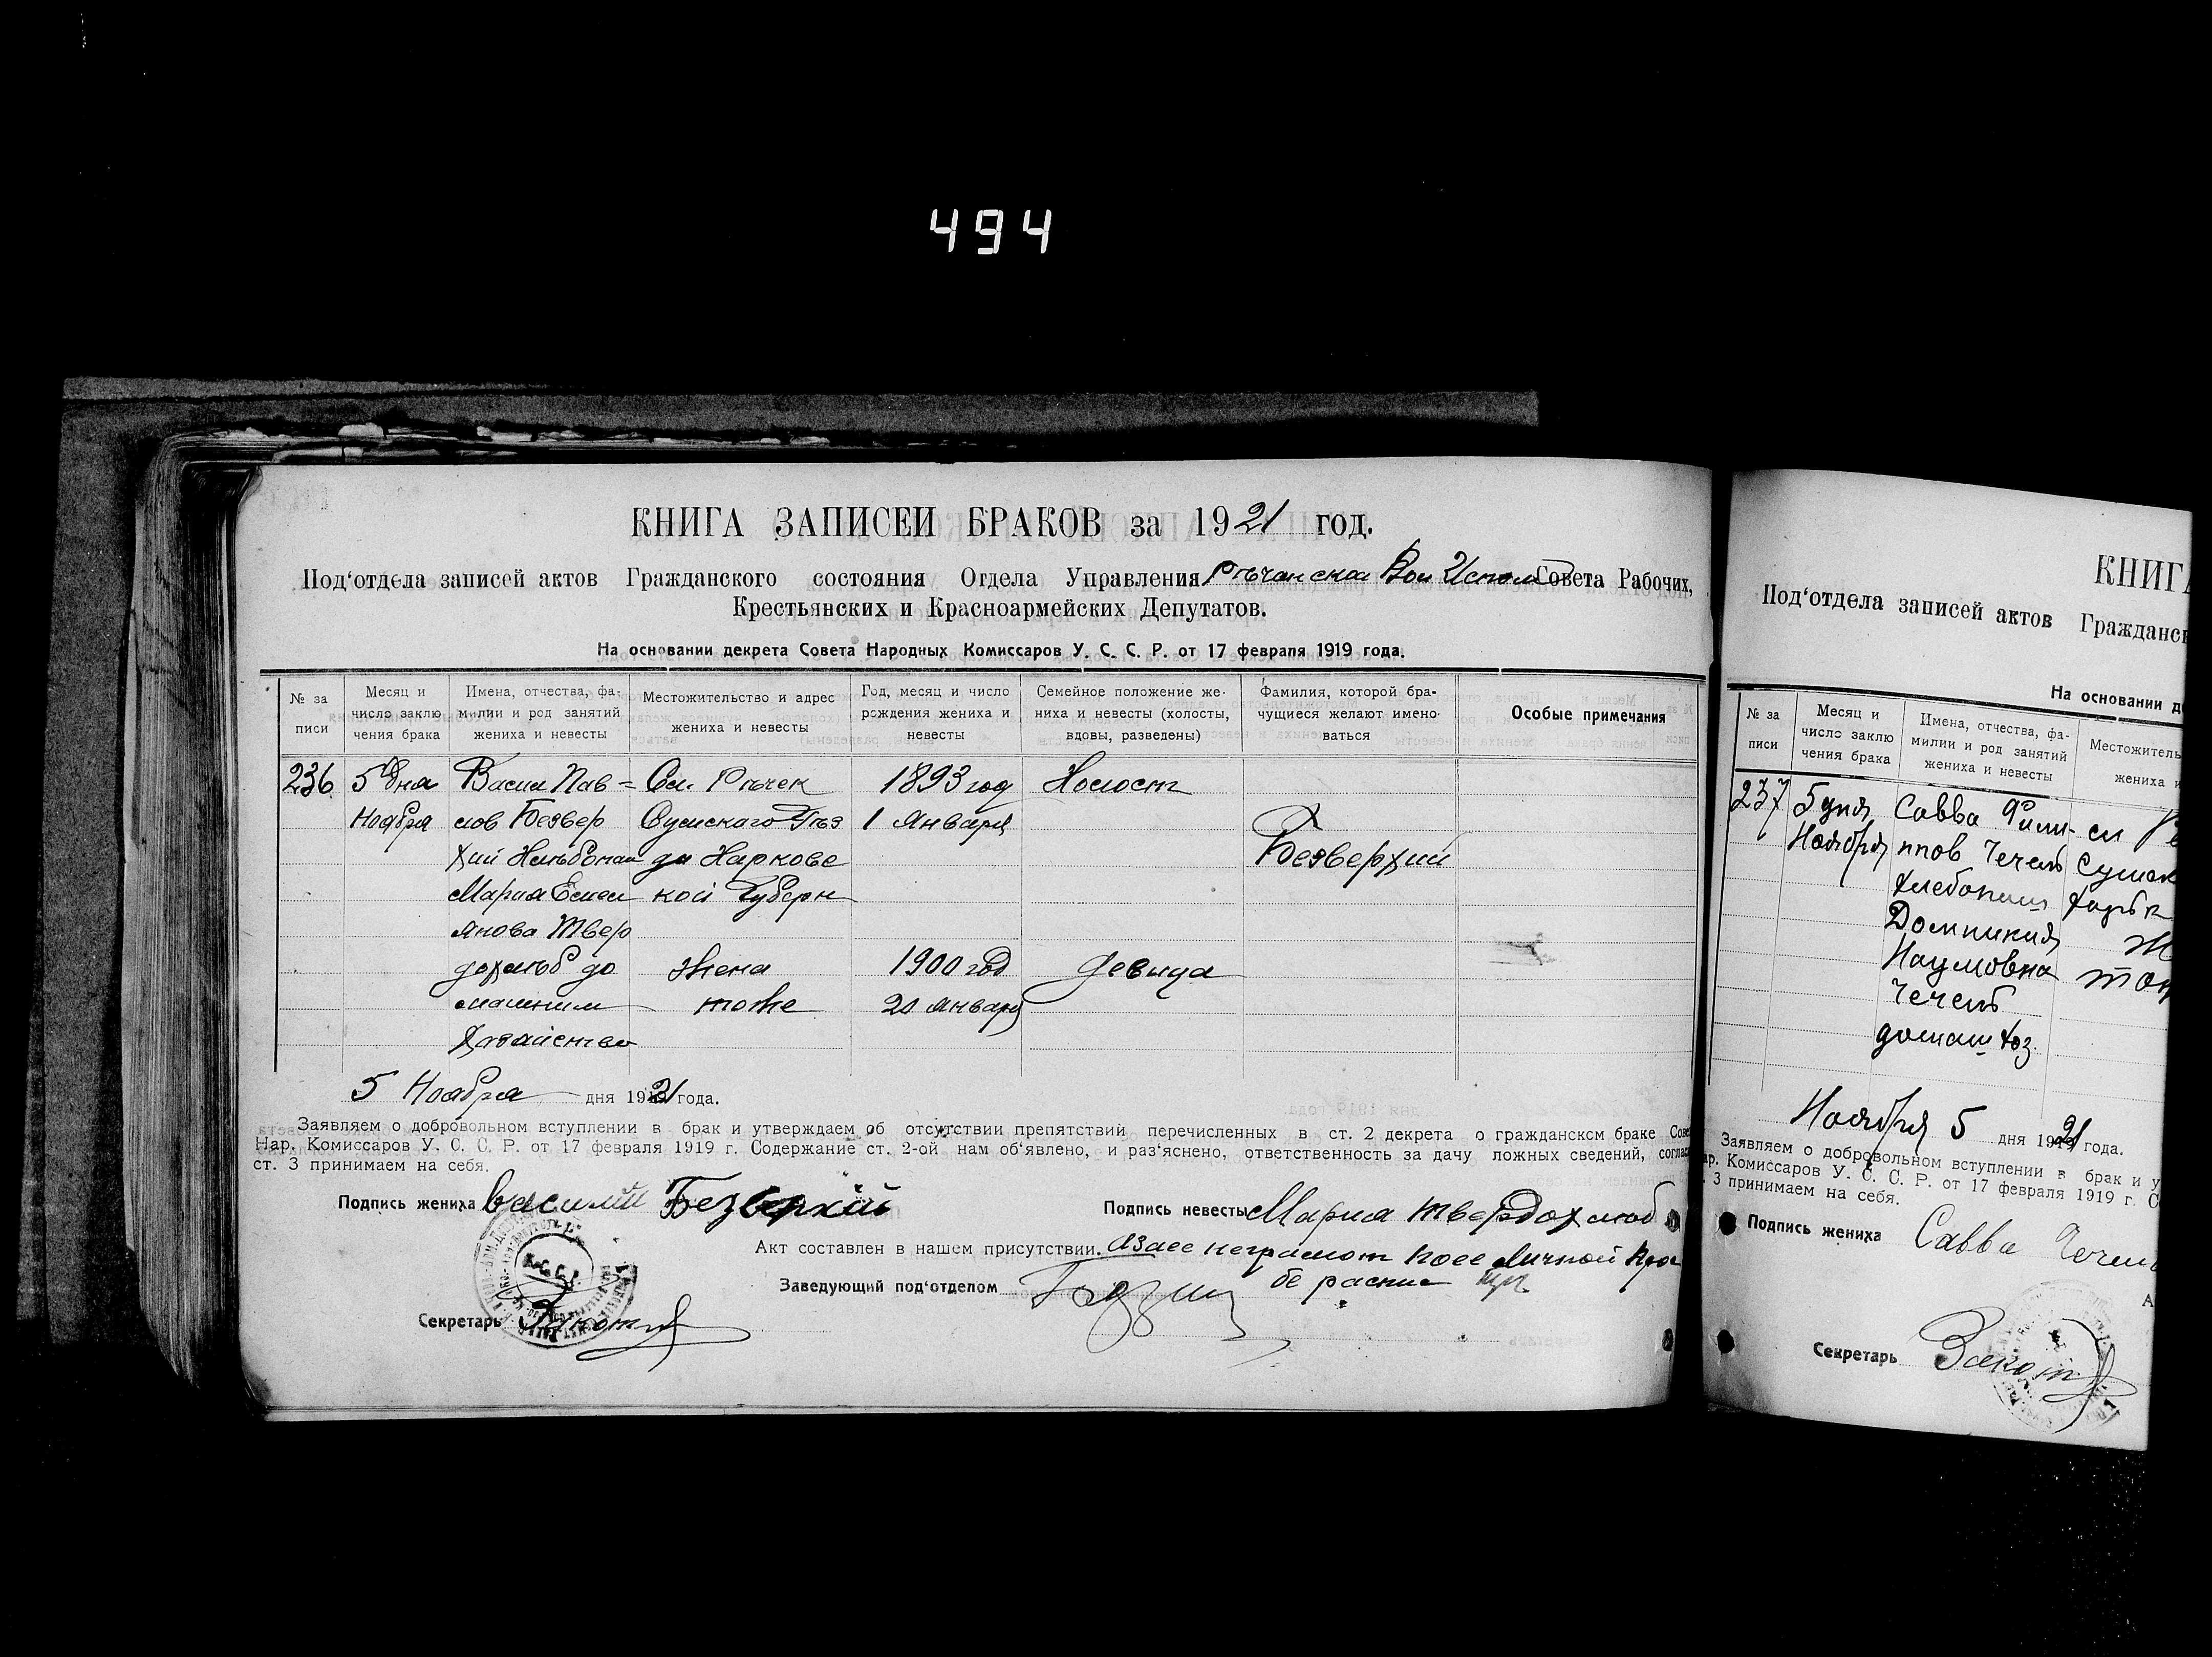 494
КНИГА ЗАПИСЕЙ БРАКОВ за 1921 год.
Под‘отдела записей актов Гражданского состояния Отдела Управления Рѣчанской Вол Испол Совета Рабочих,
Крестьянских и Красноармейских Депутатов.
На основании декрета Совета Народных Комиссаров У. С. С. Р. от 17 февраля 1919 года.
№ за писи
Месяц и число заклю чения брака
Имена, отчества, фа- милии и род занятий жениха и невесты
Местожительство и адрес жениха и невесты
Год, месяц и число рождения жениха и невесты
Семейное положение же- ниха и невесты (холосты, вдовы, разведены)
Фамилия, которой бра- чущиеся желают имено- ваться
Особые примечания
236 5 дня Васил Пав= Сл. Рѣчек 1893 год Холост
Ноября лов Безвер Сумскаго Уѣз 1 Января
хий да Харковс Безверхий
Мария Емел кой Губерн
янова Твер
дохлѣб до жена 1900 год девица
машним тоже 20 января
хозайство
5 Ноября дня 1921 года.
Заявляем о добровольном вступлении в брак и утверждаем об отсутствии препятствий перечисленных в ст. 2 декрета о гражданском браке Сове
Нар. Комиссаров У. С. С. Р. от 17 февраля 1919 г. Содержание ст. 2-ой нам об‘явлено, и раз‘яснено, ответственность за дачу ложных сведений, соглас
ст. 3 принимаем на себя.
Подпись жениха Василий Безверхий
Подпись невесты Мария Твердохлюб
Акт составлен в нашем присутствии. А за ее неграмот по ее личной про
бе распис
Заведующий под‘отделом
Секретарь
КНИГА
Под‘отдела записей актов Гражданск
На основании де
№ за писи
Месяц и число заклю чения брака
Имена, отчества, фа- милии и род занятий жениха и невесты
Местожитель жениха и
237 5 дня Савва Фили- сл Ре
Ноября ппов Чечель Сумск
хлебопаш харьк
Домникия Ж
Наумовна тож
Чечель
домаш хоз.
Ноября 5 дня 1921 года.
Заявляем о добровольном вступлении в брак и у
ар. Комиссаров У. С. С. Р. от 17 февраля 1919 г. С
. 3 принимаем на себя.
Подпись жениха Савва Чечель
А
Секретарь